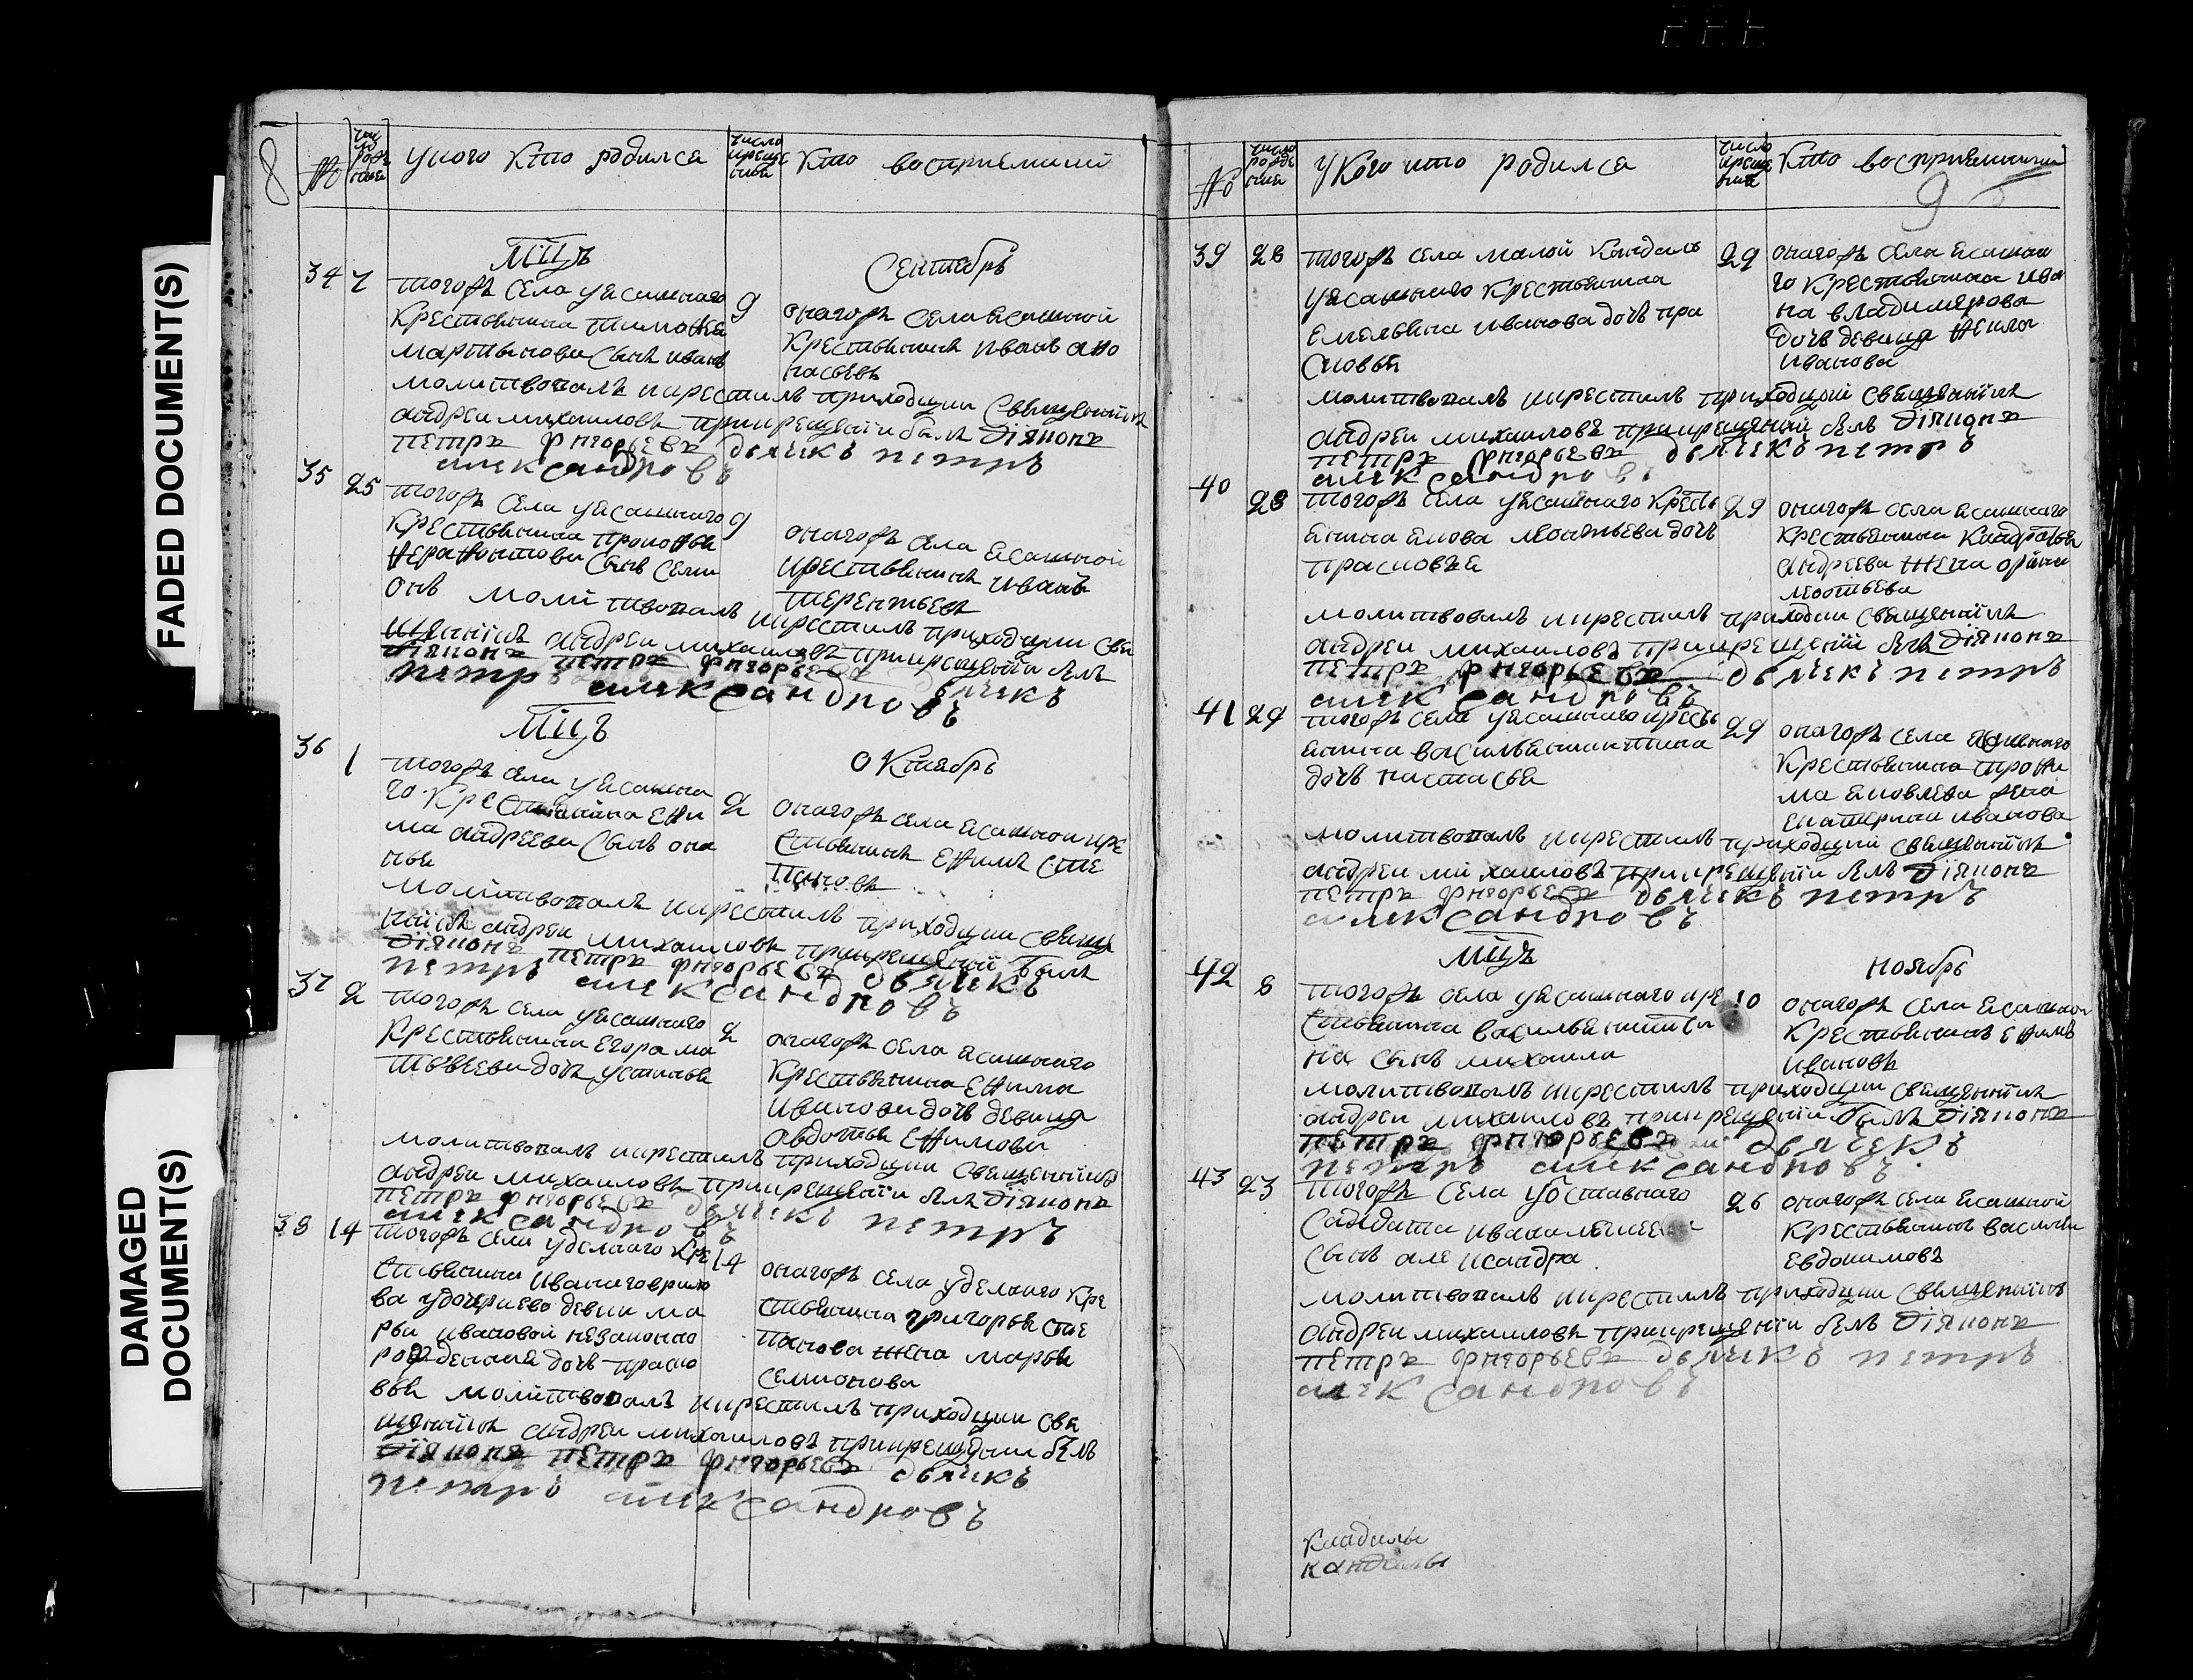 FADED DOCUMENT(S)
DAMAGED
DOCUMENT(S)
8
№
число рожде ния
у кого кто родился
число креще ния
кто восприемникй
Мцъ
Сентебрь
34 7
тогожъ села уясашнаго
крестьянина тимофея
мартынова сынъ иванъ
9
онагожъ села ясашной
крестьянинъ иванъ афо
насьевъ
молитвовалъ икрестилъ приходции священникъ
андреи михаиловъ прикрещении былъ діяконъ
петръ григорьевъ дьячекъ петръ
александровъ
35 25
тогожъ села уясашнаго
крестьянина прокофья
ферафонтова сынъ семи
онъ
9
онагожъ села ясашной
крестьянинъ иванъ
терентьевъ
молитвовалъ икрестилъ приходции свя
щенникъ андреи михаиловъ прикрещении былъ
діяконъ петръ григорьевъ дьячекъ
петръ александровъ
Мцъ
Октябрь
36 1
тогожъ села уясашна
го крестьянина ефи
ма андреева сынъ она
нья
2
онагожъ села ясашнои кре
стьянинъ ефимъ сте
пановъ
молитвовалъ икрестилъ приходции священ
никъ андреи михаиловъ прикрещении былъ
діяконъ петръ григорьевъ дьячекъ
петръ александровъ
37 2
тогожъ села уясашнаго
крестьянина егора ма
твѣева дочь устинья
2
онагожъ села ясашнаго
крестьянина ефима
иванова дочь девица
авдотья ефимова
молитвовалъ икрестилъ приходции священникъ
андреи михаиловъ прикрещении былъ діяконъ
петръ григорьевъ дьячекъ петръ
александровъ
38 14
тогожъ села уделнаго кре
стьянина иванаговрило
ва удочриево девки ма
рьи ивановой незаконно
рожденная дочь праско
вья
14
онагожъ села уделнаго кре
стьянина григорья сте
панова жена марья
семионова
молитвовалъ икрестилъ приходции свя
щенникъ андреи михаиловъ прикрещении былъ
діяконъ петръ григорьевъ дьячекъ
петръ александровъ
№
число рожде ния
у кого кто родился
число креще ния
кто восприемники
9
39 28
тогожъ села малой кандалы
уясашнаго крестьянина
емельяна иванова дочь пра
сковья
29
онагожъ села ясашна
го крестьянина ива
на владимерова
дочь девица фекла
иванова
молитвовалъ икрестилъ приходции священникъ
андреи михаиловъ прикрещении былъ діяконъ
петръ григорьевъ дьячекъ петръ
александровъ
40 28
тогожъ села уясашнаго кресть
янина якова леонтьева дочь
прасковья
29
онагожъ села ясашнаго
крестьянина кандратья
андреева жена орина
леотьева
молитвовалъ икрестилъ приходции священникъ
андреи михаиловъ прикрещении былъ діяконъ
петръ григорьевъ дьячекъ петръ
александровъ
41 29
тогожъ села уясашнаго кресть
янина василья никитина
дочь настасья
29
онагожъ села ясашнаго
крестьянина трофи
ма яковлева жена
екатерина иванова
молитвовалъ икрестилъ приходции священникъ
андреи михаиловъ прикрещении былъ діяконъ
петръ григорьевъ дьячекъ петръ
александровъ
Мцъ
Ноябрь
42 8
тогожъ села уясашнаго кре
стьянина василья никити
на сынъ михаила
10
онагожъ села ясашнои
крестьянинъ ефимъ
ивановъ
молитвовалъ икрестилъ приходции священникъ
андреи михаиловъ прикрещении былъ діяконъ
петръ григорьевъ дьячекъ
петръ александровъ
43 23
тогожъ села уотставнаго
салдата ивана
сынъ александра
26
онагожъ села ясашной
крестьянинъ василеи
евдокимовъ
молитвовалъ икрестилъ приходции священникъ
андреи михаиловъ прикрещении былъ діяконъ
петръ григорьевъ дьячекъ петръ
александровъ
кандалы
кандалы